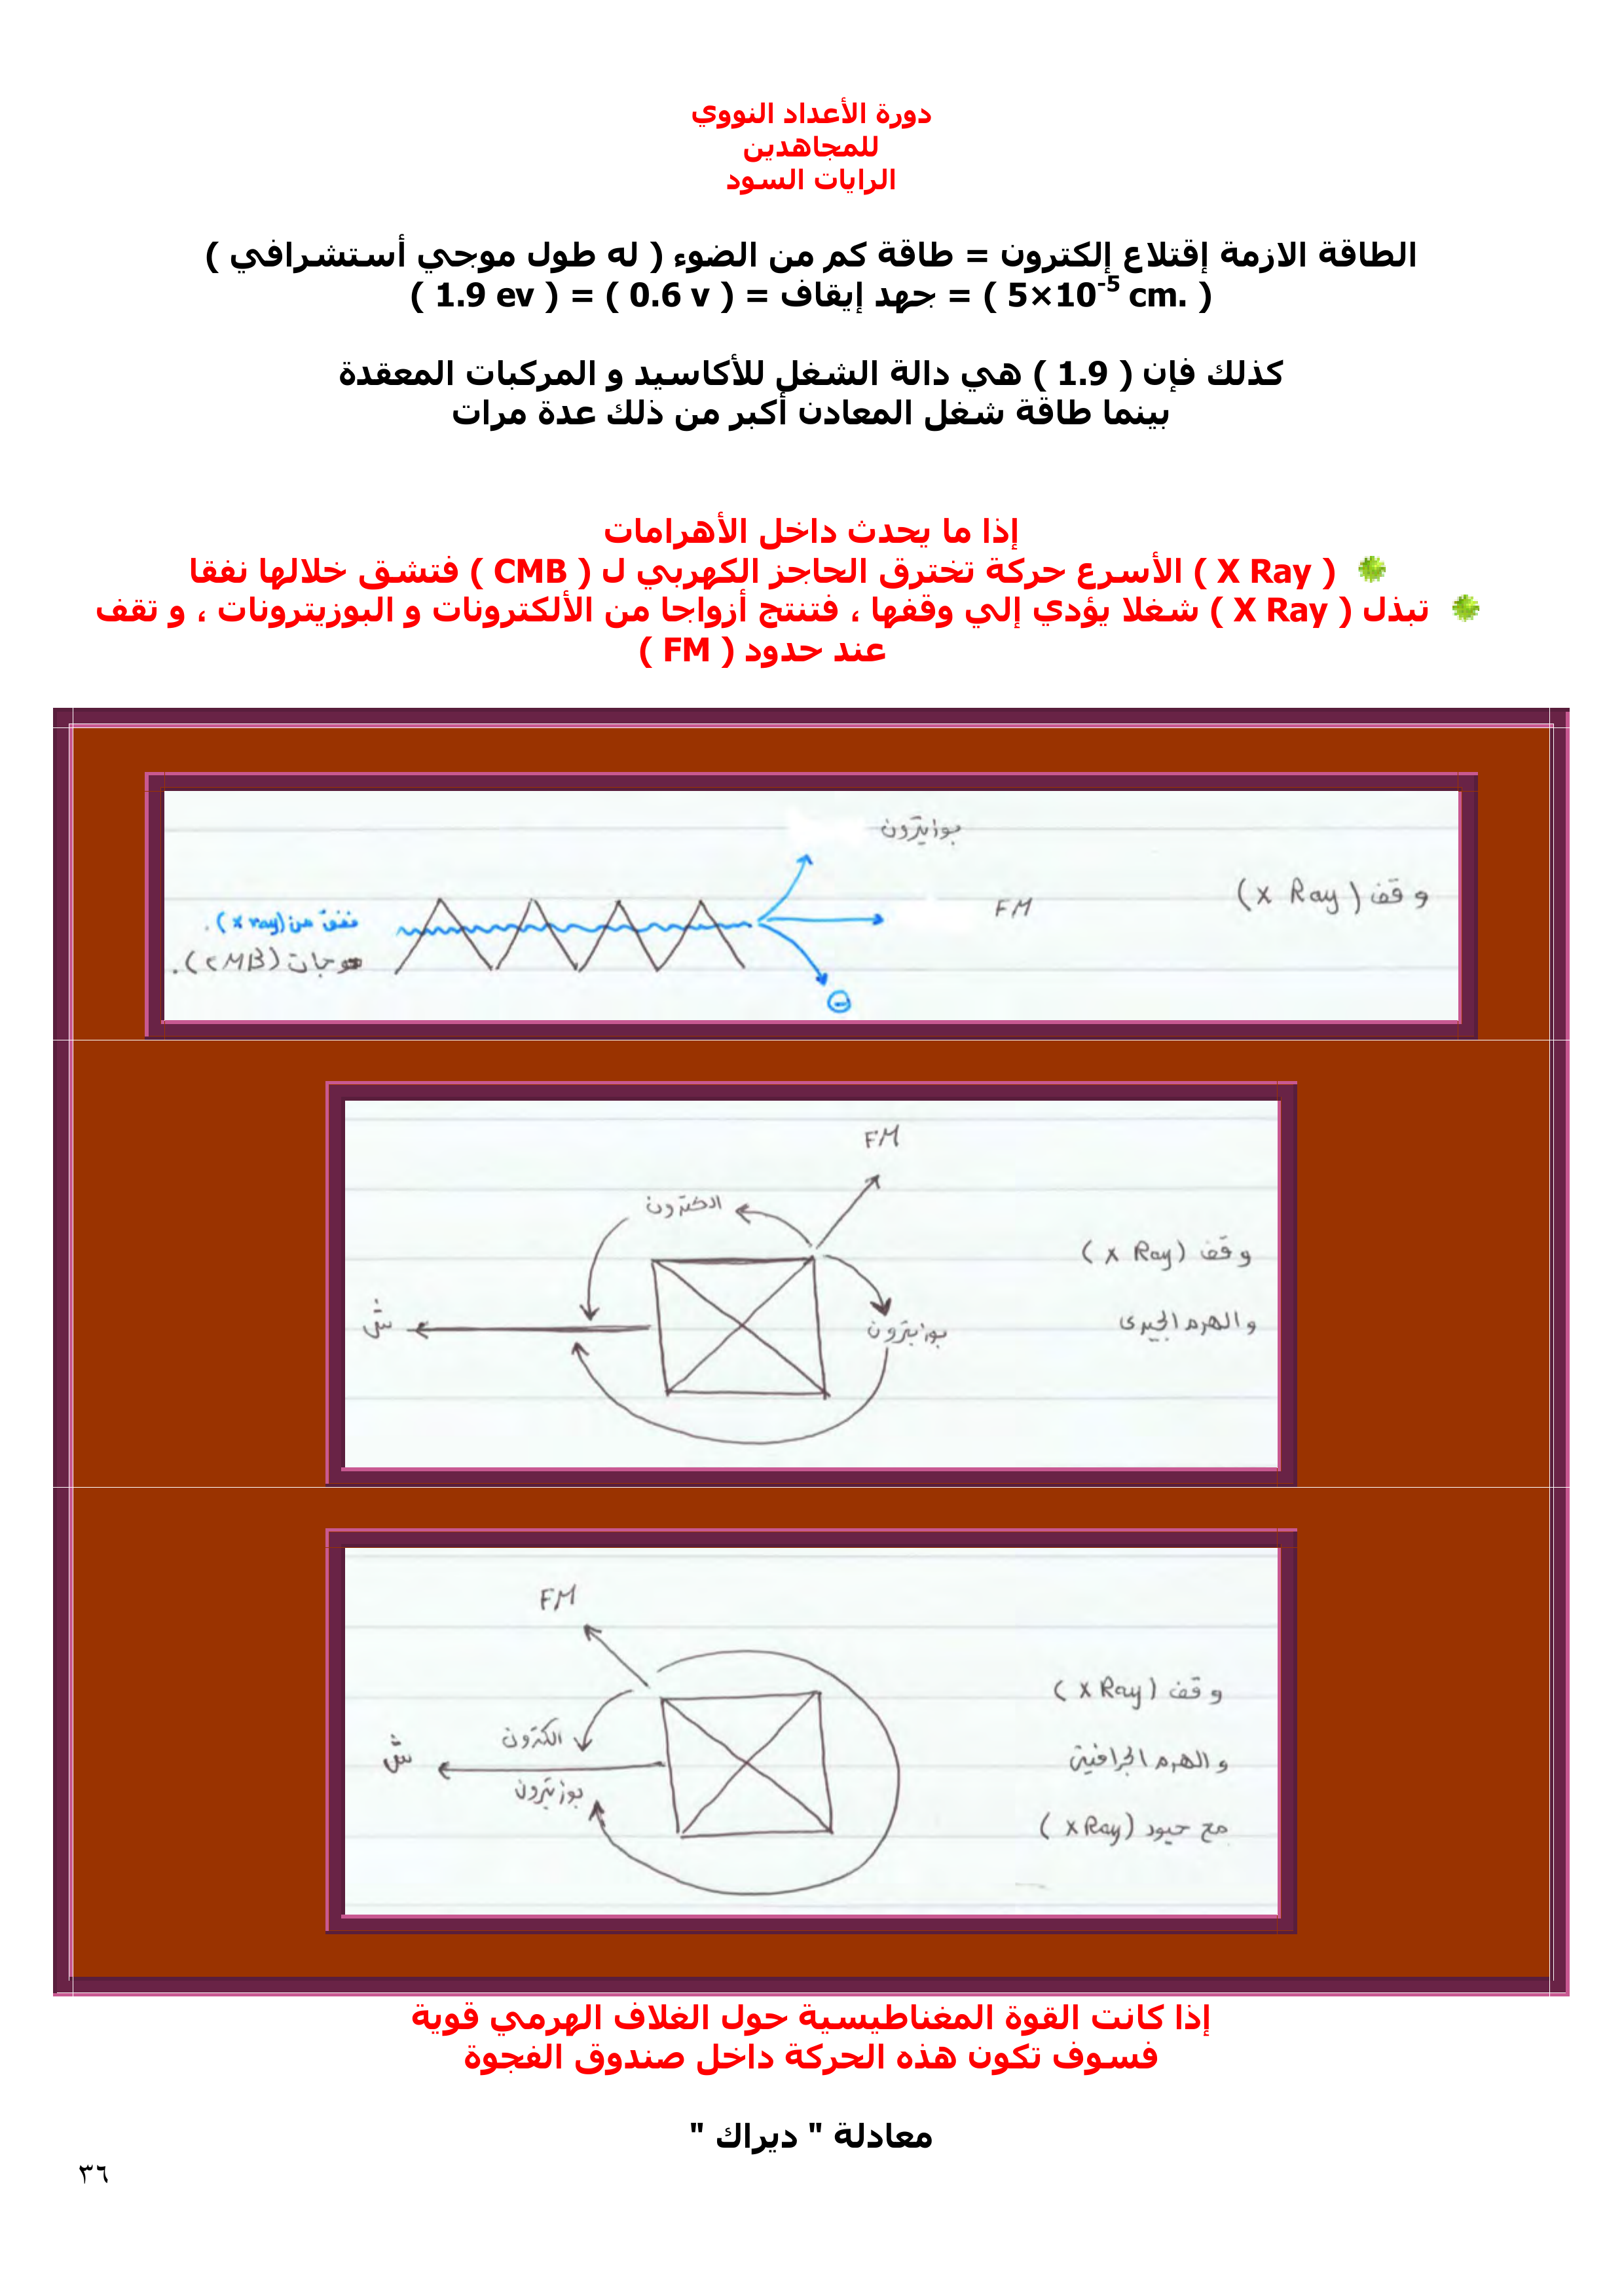 دورة الأعداد النووي
للمجاهدين
الرايات السود
الطاقة الازمة إقتلاع إلكترون = طاقة كم من الضوء ( له طول موجي أستشرافي )
( 5×10⁻⁵ cm. ) = جهد إيقاف = ( 0.6 v ) = ( 1.9 ev )
كذلك فإن ( 1.9 ) هي دالة الشغل للأكاسيد و المركبات المعقدة
بينما طاقة شغل المعادن أكبر من ذلك عدة مرات
إذا ما يحدث داخل الأهرامات
( X Ray ) الأسرع حركة تخترق الحاجز الكهربي ل ( CMB ) فتشق خلالها نفقا
تبذل ( X Ray ) شغلا يؤدي إلي وقفها ، فتنتج أزواجا من الألكترونات و البوزيترونات ، و تقف
عند حدود ( FM )
بوزيترون
وقف ( X Ray )
FM
نفق من (x ray).
موجات (CMB).
FM
الكترون
وقف ( X Ray )
و الهرم الجيرى
بوزيترون
ش
FM
وقف ( X Ray )
الكترون
و الهرم الجرافيتى
ش
بوزيترون
مع حيود ( X Ray )
إذا كانت القوة المغناطيسية حول الغلاف الهرمي قوية
فسوف تكون هذه الحركة داخل صندوق الفجوة
معادلة " ديراك "
٣٦